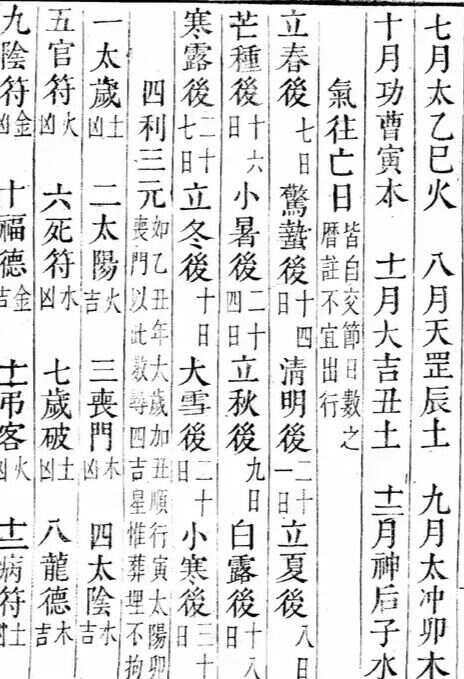 七月太乙巳火 八月天罡辰土 九月太冲卯木
十月功曹寅木 十一月大吉丑土 十二月神后子水
氣往亡日 皆自交節日數之 曆註不宜出行
立春後七日 驚蟄後十四日 清明後二十一日 立夏後八日
芒種後十六日 小暑後二十四日 立秋後九日 白露後十八日
寒露後二十七日 立冬後十日 大雪後二十日 小寒後三十日
四利三元 如乙丑年大歲加丑順行寅太陽卯 喪門以此數尋四吉星惟葬埋不拘
一太歲土凶 二太陽火吉 三喪門木凶 四太陰水吉
五官符火凶 六死符水凶 七歲破土凶 八龍德木吉
九陰符金凶 十福德金吉 十一吊客火凶 十二病符土